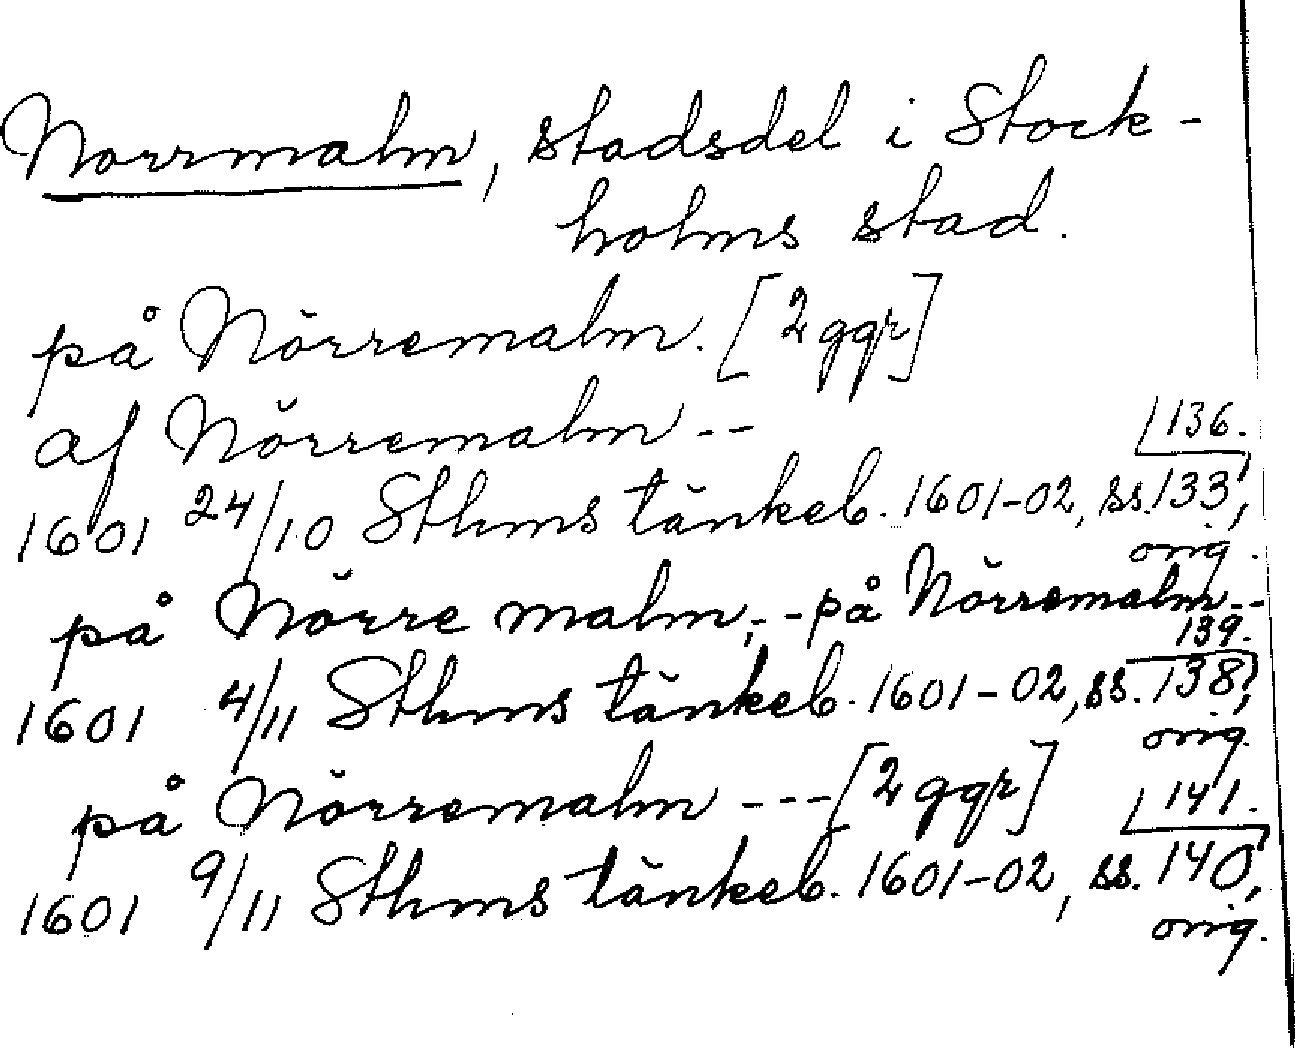 Norrmalm, stadsdel i Stock-
holms stad.
på Nörremalm. [2 ggr]
af Nörremalm --
136.
1601 24/10 Sthms tänkeb. 1601-02, ss. 133,
orig.
på Nörre malm, -- på Nörremalm --
139.
1601 4/11 Sthms tänkeb. 1601-02, ss. 138,
orig.
på Nörremalm --- [2 ggr]
141.
1601 9/11 Sthms tänkeb. 1601-02, ss. 140,
orig.